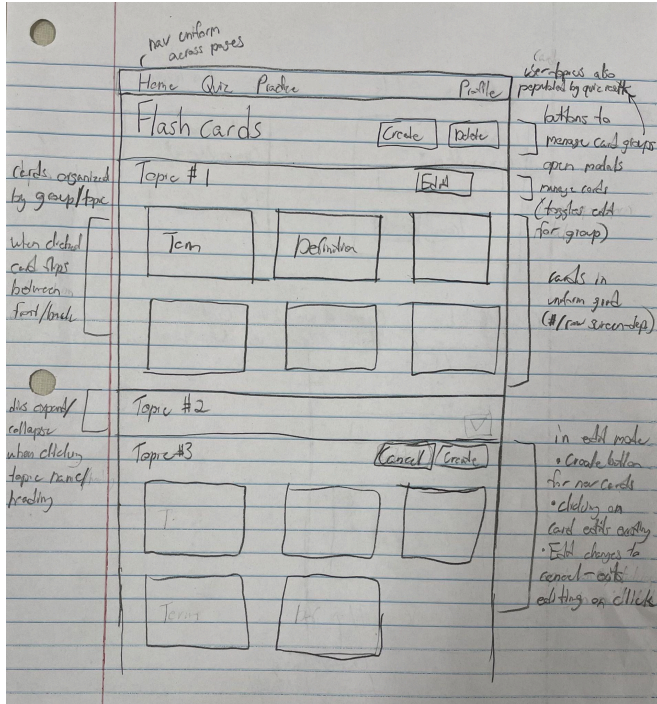 nav uniform
across pages
Home Quiz Practice Profile
user-topics also
populated by quiz results
Flash cards
Create Delete
buttons to
manage card groups
open modals
Topic #1
Edit
manage cards
(toggles edit
for group)
cards organized
by group/topic
when clicked
card flips
between
front/back
Term Definition
cards in
uniform grid
(#/row screen-dep)
Topic #2
divs expand/
collapse
when clicking
topic name/
heading
Topic #3
Cancel Create
in edit mode
• Create button
for new cards
• clicking on
card edits existing
• Edit changes to
cancel-exits
editing on click
Term